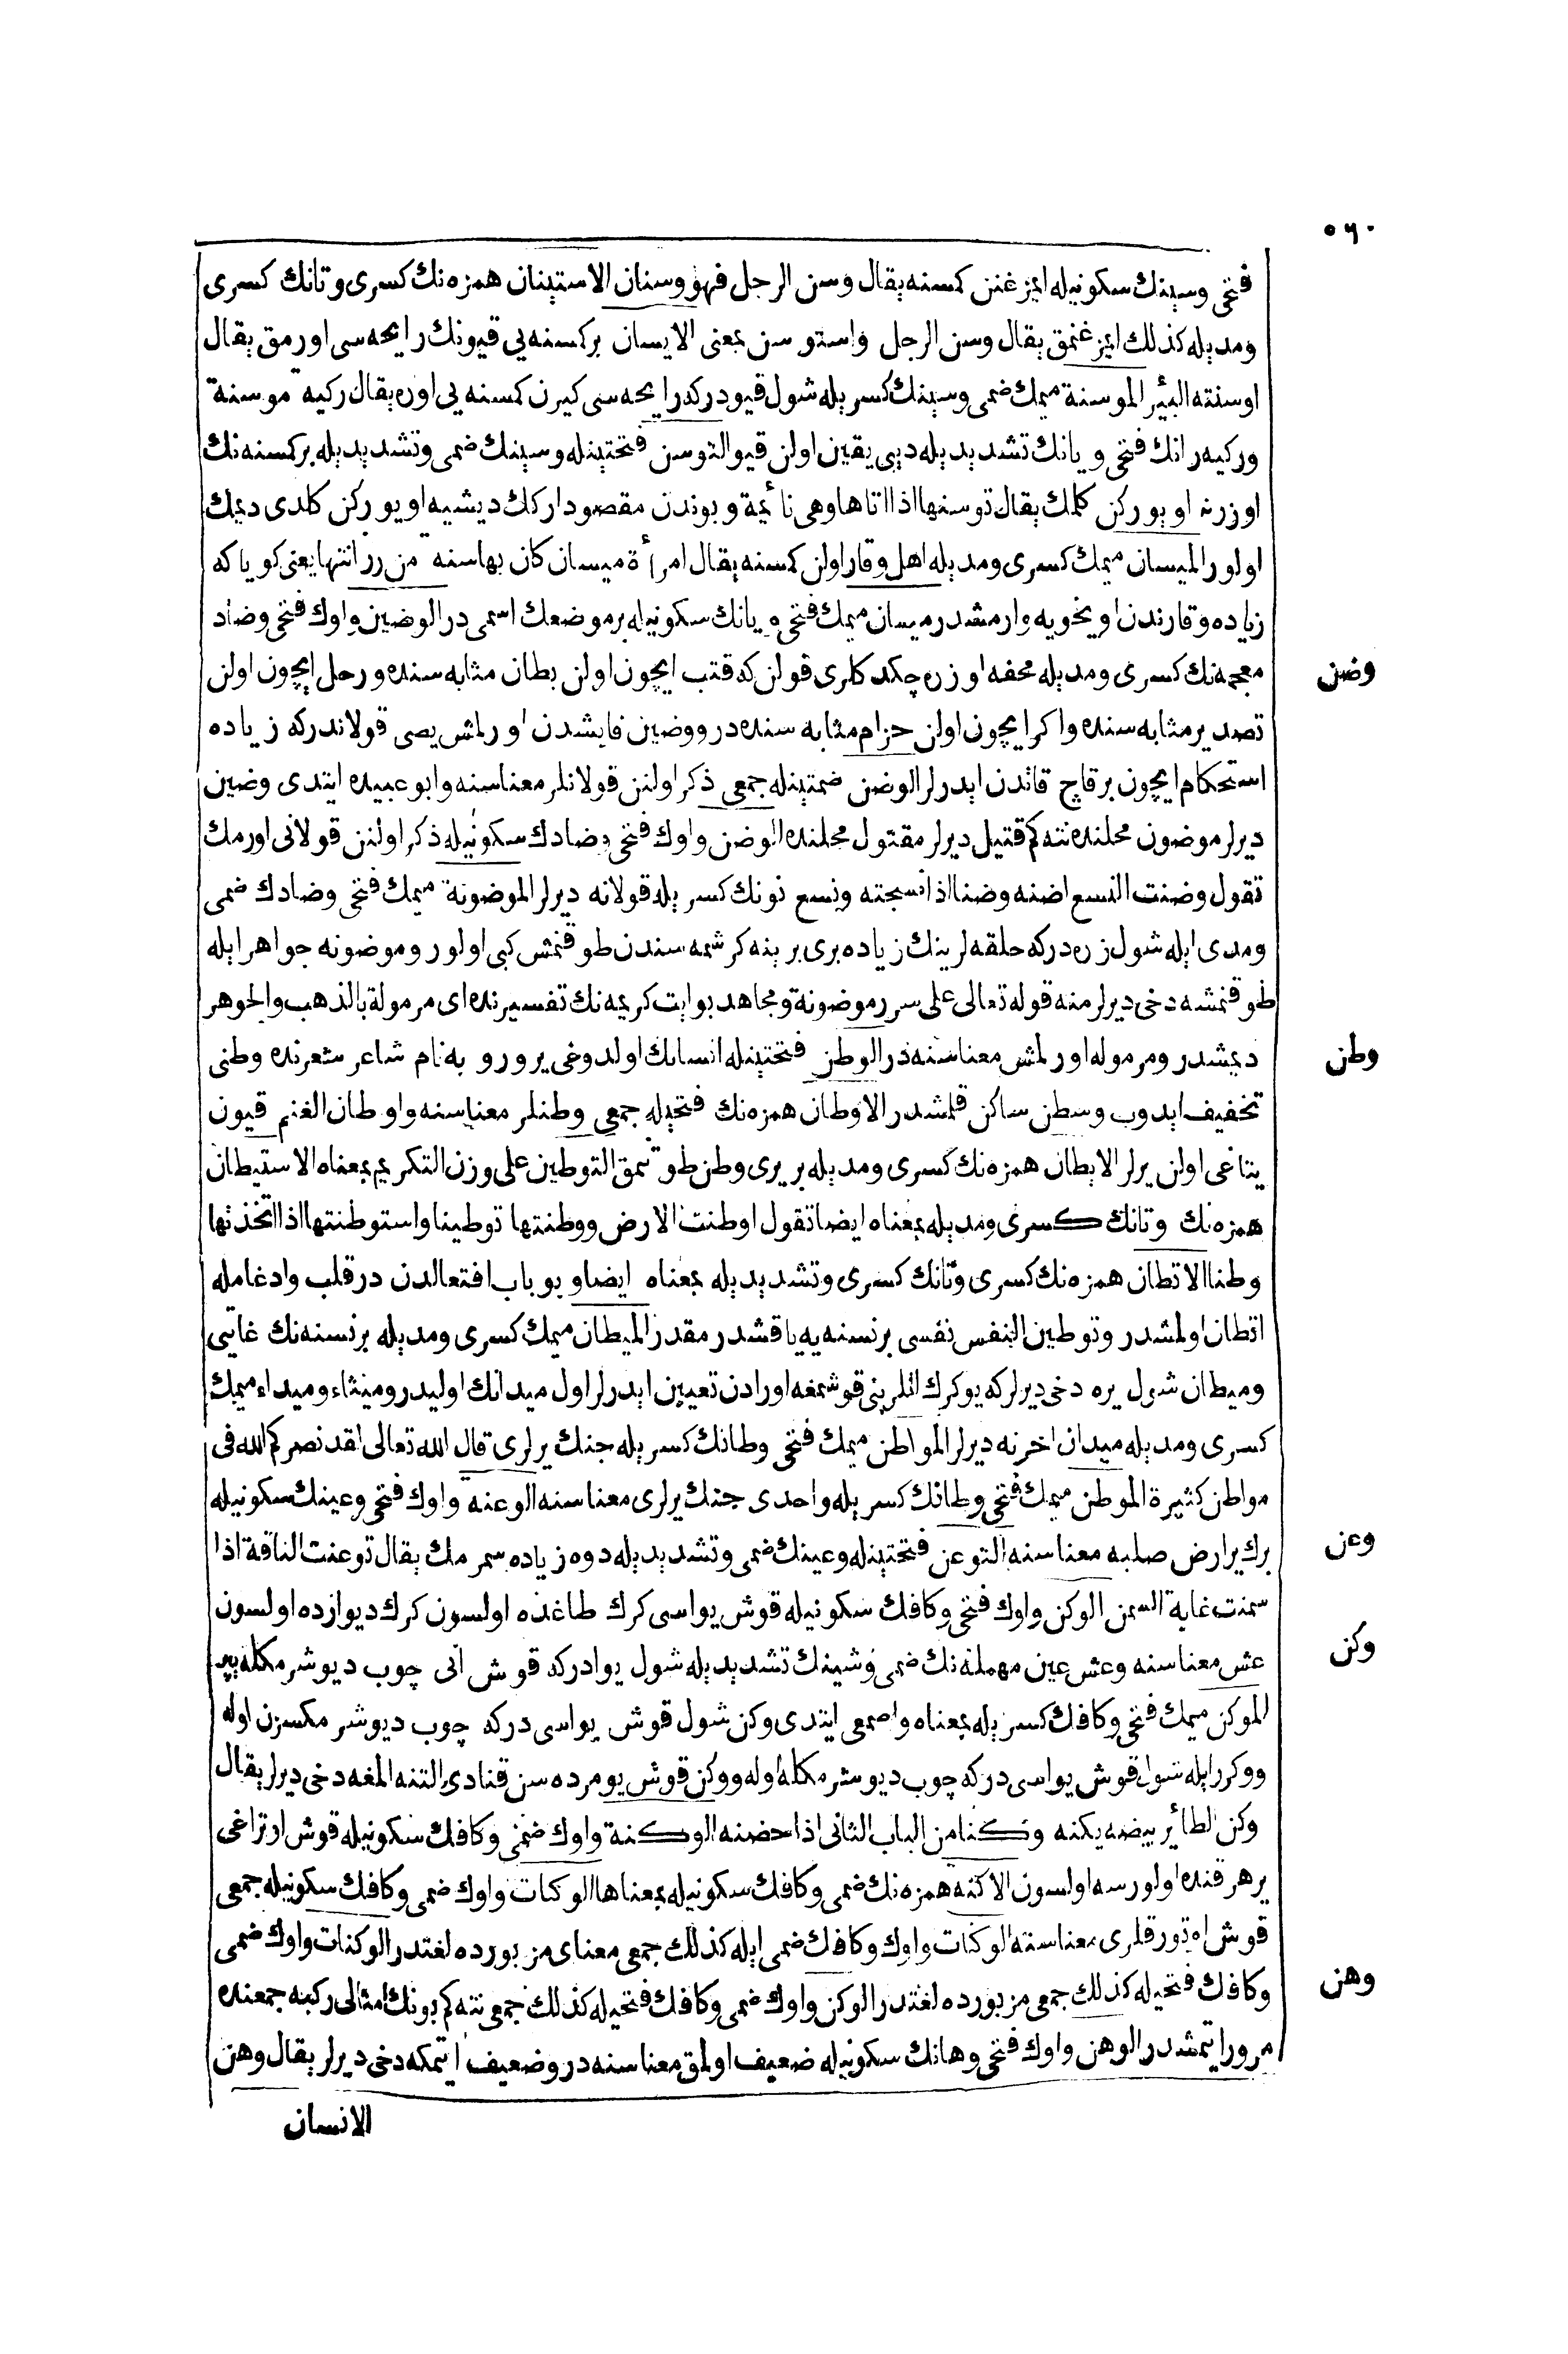 ٥٦٠
فتحى وسينك سكونيله ايمزغنن كمسنه يقال وسن الرجل فهو وسنان الاستينان همزه نك كسرى وتانك كسرى
ومديله كذلك ايمزغنمق يقال وسن الرجل واستوسن بمعنى الايسان بركسنه يى قيونك رايحه سى اورمق يقال
اوسنته البئر الموسنة ميمك ضمى وسينك كسريله شول قيودركه رايحه سى كيرن كمسنه يى اوره يقال ركيه موسنة
وركيه رانك فتحى ويانك تشديديله ديبى يقين اولن قيو التوسن فتحتينله وسينك ضمى وتشديديله بركسنه نك
اوزرنه اويوركن كلمك يقال توسنها اذا اتاها وهى نائمة وبوندن مقصود اركك ديشيه اويوركن كلدى ديمك
اولور الميسان ميمك كسرى ومديله اهل وقار اولن كمسنه يقال امرأة ميسان كان بها سنه من رزانتها يعنى كوياكه
زياده وقارندن اويخويه وارمشدر ميسان ميمك فتحى ويانك سكونيله بر موضعك اسمى در الوضين واوك فتحى وضاد
وضن
معجمه نك كسرى ومديله محفه اوزره چكدكلرى قولن كه قتب ايچون اولن بطان مثابه سنده ورحل ايچون اولن
تصدير مثابه سنده واكر ايچون اولن حزام مثابه سنده در ووضين قايشدن اورلمش يصى قولاندركه زياده
استحكام ايچون برقاچ قاتدن ايدرلر الوضن ضمتينله جمعى ذكر اولنن قولانلر معناسنه وابو عبيده ايتدى وضين
ديرلر موضون محلنده نته كم قتيل ديرلر مقتول محلنده الوضن واوك فتحى وضادك سكونيله ذكر اولنن قولانى اورمك
تقول وضنت النسع اضنه وضنا اذا نسجته ونسع نونك كسريله قولانه ديرلر الموضونة ميمك فتحى وضادك ضمى
ومدى ايله شول زره دركه حلقه لرينك زياده برى برينه كرشمه سندن طوقنمش كبى اولور وموضونه جواهر ايله
طوقنمشه دخى ديرلر منه قوله تعالى على سرر موضونة ومجاهد بو ايت كريمه نك تفسيرنده اى مرمولة بالذهب والجوهر
وطن
ديمشدر ومرموله اورلمش معناسنه در الوطن فتحتينله انسانك اولدوغى يردر وبه نام شاعر شعرنده وطنى
تخفيف ايدوب وسطن ساكن قلمشدر الاوطان همزه نك فتحيله جمعى وطنلر معناسنه واوطان الغنم قيون
يتاغى اولن يرلر الايطان همزه نك كسرى ومديله بريرى وطن طوتمق التوطين على وزن التكريم بمعناه الاستيطان
همزه نك وتانك كسرى ومديله بمعناه ايضا تقول اوطنت الارض ووطنتها توطينا واستوطنتها اذا اتخذتها
وطنا الاتطان همزه نك كسرى وتانك كسرى وتشديديله بمعناه ايضا وبو باب افتعالدن در قلب وادغامله
اتطان اولمشدر وتوطين النفس نفسى برنسنه يه ياقشدرمقدر الميطان ميمك كسرى ومديله برنسنه نك غايتى
وميطان شول يره دخى ديرلركه يوكرك اتلرينى قوشمغه اورادن تعيين ايدرلر اول ميدانك اوليدر وميتاء وميداء ميمك
كسرى ومديله ميدان اخرنه ديرلر المواطن ميمك فتحى وطانك كسريله جنك يرلرى قال الله تعالى لقد نصركم الله فى
مواطن كثيرة الموطن ميمك فتحى وطانك كسريله واحدى جنك يرلرى معناسنه الوعنه واوك فتحى وعينك سكونيله
وعن
برك ير ارض صلبه معناسنه التوعن فتحتينله وعينك ضمى وتشديديله دوه زياده سمرمك يقال توعنت الناقة اذا
سمنت غاية السمن الوكن واوك فتحى وكافك سكونيله قوش يواسى كرك طاغده اولسون كرك ديوارده اولسون
وكن
عش معناسنه وعش عين مهمله نك ضمى وشينك تشديديله شول يوادركه قوش انى چوب ديوشرمكله يپر
الموكن ميمك فتحى وكافك كسريله بمعناه واصمعى ايتدى وكن شول قوش يواسى دركه چوب ديوشرمكسزن اوله
ووكر رايله شول قوش يواسى دركه چوب ديوشرمكله اوله ووكن قوش يومرده سن قنادى التنه المغه دخى ديرلر يقال
وكن الطائر بيضه يكنه وكنا من الباب الثانى اذا حضنه الوكنة واوك ضمى وكافك سكونيله قوش اوتراغى
ير هر قنده اولورسه اولسون الاكنه همزه نك ضمى وكافك سكونيله بمعناها الوكنات واوك ضمى وكافك سكونيله جمعى
قوش اوتورقلرى معناسنه الوكنات واوك وكافك ضمى ايله كذلك جمعى معناى مزبورده لغتدر الوكنات واوك ضمى
وكافك فتحيله كذلك جمعى مزبورده لغتدر الوكن واوك ضمى وكافك فتحيله كذلك جمعى نته كم بونك امثالى ركبه جمعنده
وهن
مرور ايتمشدر الوهن واوك فتحى وهانك سكونيله ضعيف اولمق معناسنه در وضعيف ايتمكه دخى ديرلر يقال وهن
الانسان